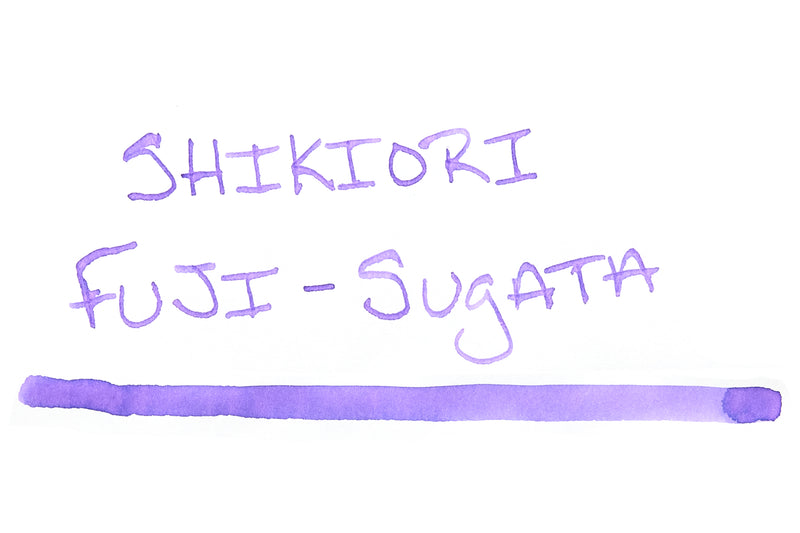 SHIKIORI
FUJI - SUgATA